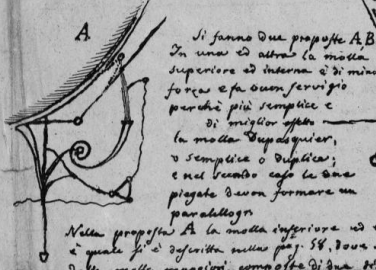 A
Si fanno due proposte A. B
In una ed altra la molla
superiore ed interna è di minor
forza e fa buon servigio
perchè più semplice e
di miglior effetto
la molla Dupasquier,
o semplice o duplice;
e nel secondo caso le due
piegate devon formare un
parallelogr
Nella proposta A la molla inferiore ed e
è quale si è descritta nella pag. 58, dove s
molle maggiori composte di due di